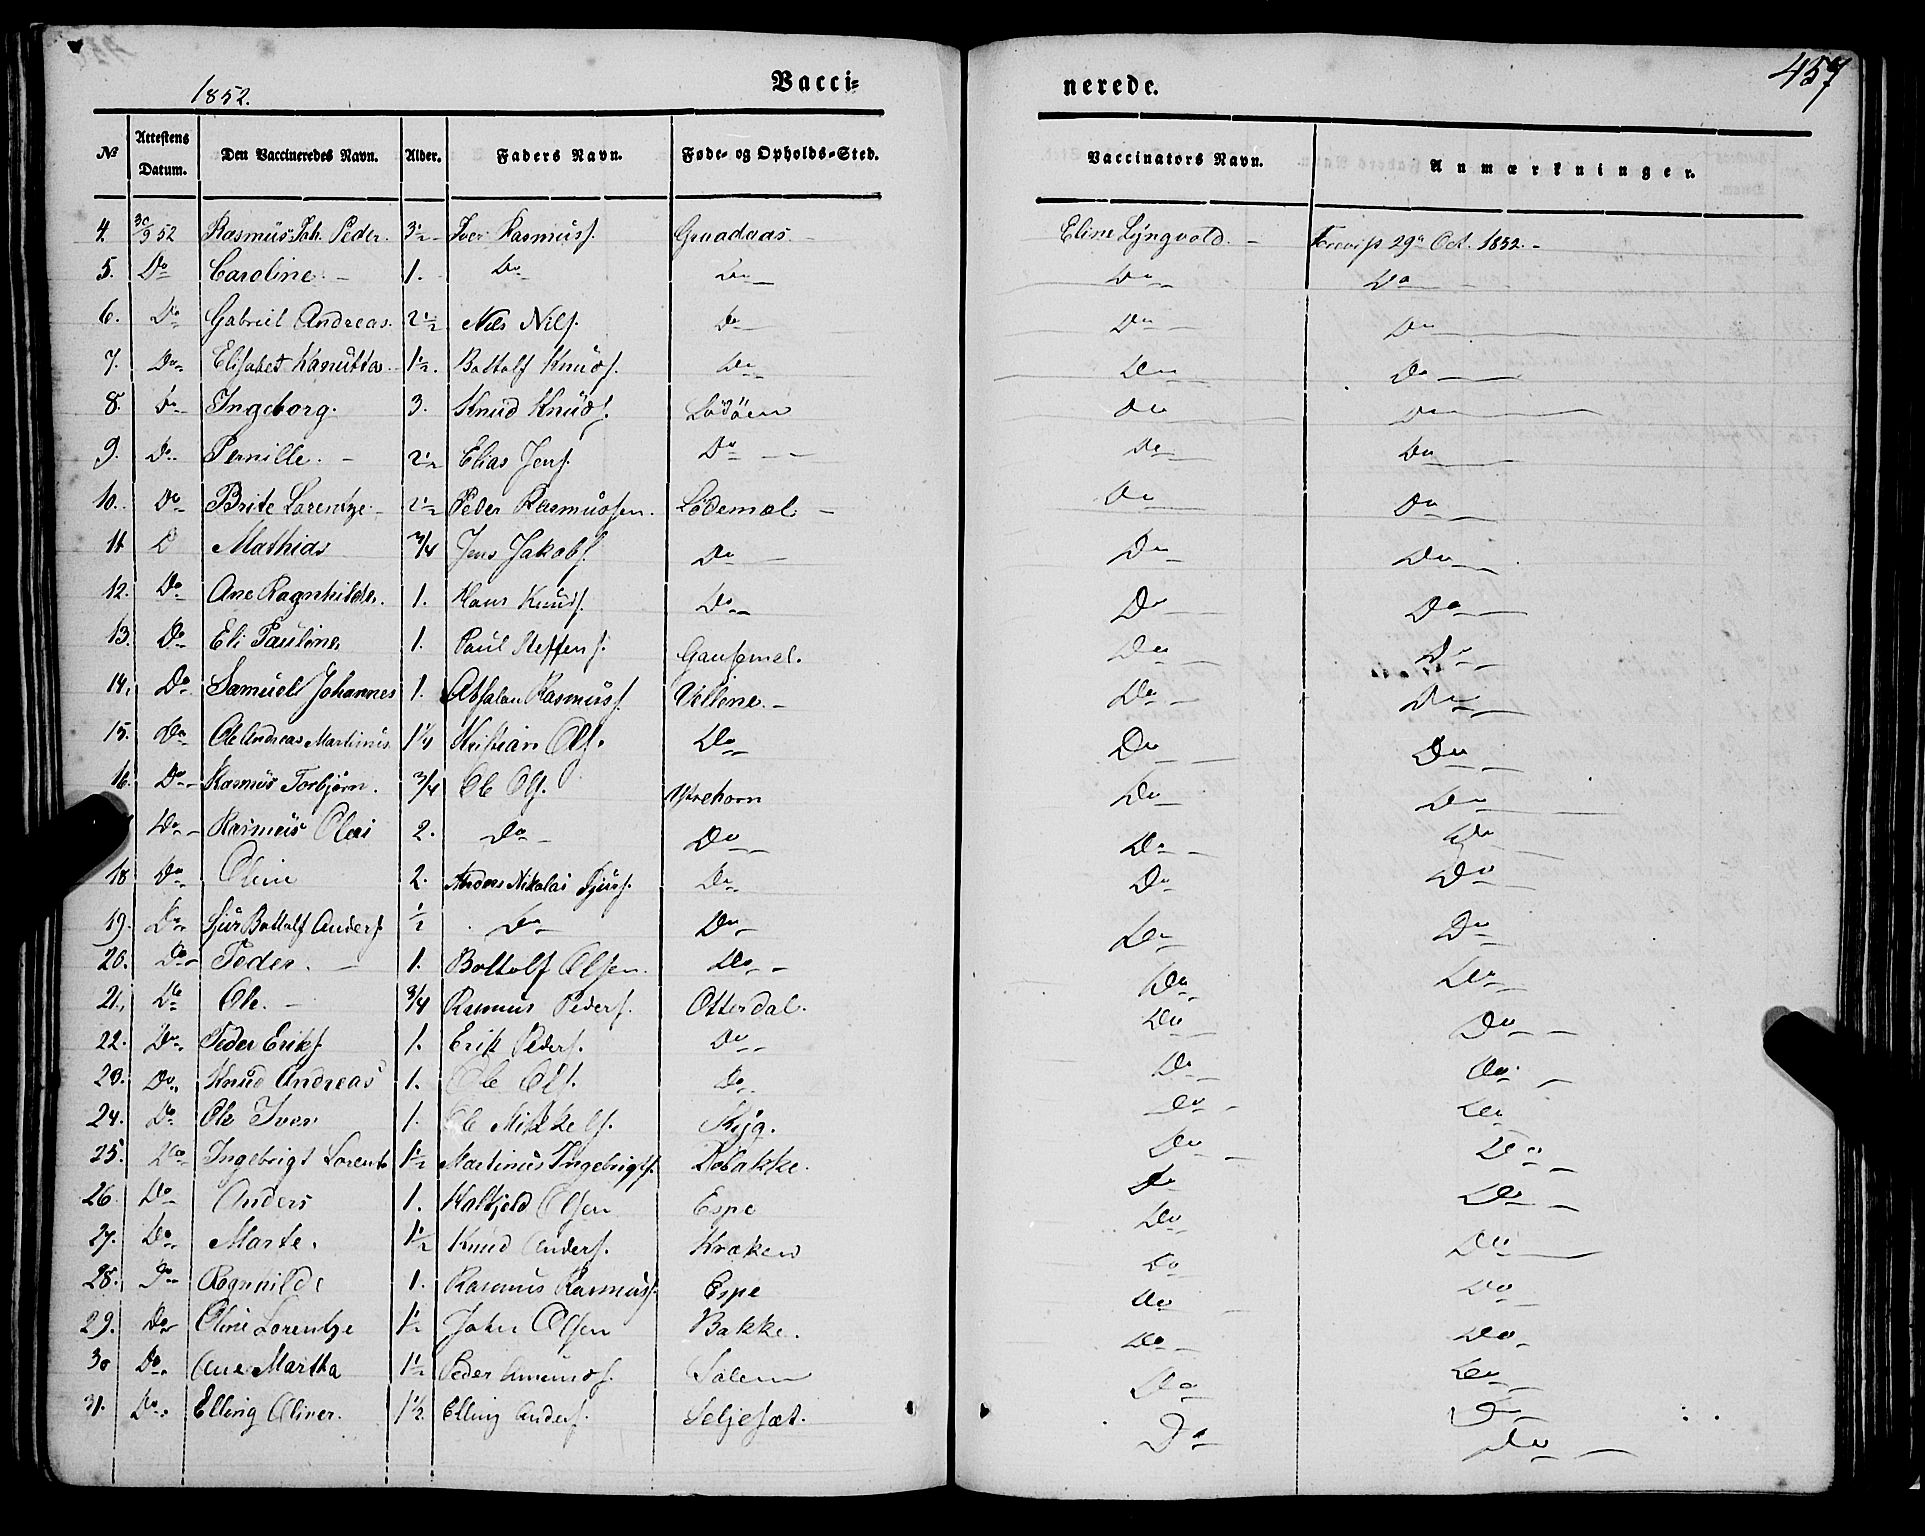 457
1852.
Vacci= nerede.
No Attestens Datum. Den Vaccineredes Navn. Alder. Faders Navn. Føde- og Opholds-Sted. Vaccinators Navn. Anmærkninger.
4. 30/9 52 Rasmus Joh. Peder. 3½ Iver Rasmusf. Graadaas. Eline Lyngvold. Forevist 29de Oct. 1852.
5. Do Caroline. 1. Do Do Do Do
6. Do Gabriel Andreas. 2½ Nils Nilsf. Do Do Do
7. Do Elisabet Kanutta 1½. Bottolf Knudsf. Do Do Do
8. Do Ingeborg. 3. Knud Knudsf. Lödöen Do Do
9. Do Pernille. 2½ Elias Jensf. Do Do Do
10. Do Brite Lorentze 2½ Peder Rasmussen. Lödemel Do Do
11 D Mathias 3/4 Jens Jakobsf. Do Do Do
12. Do Ane Ragnhilda. 1. Hans Knudsf. Do Do Do
13. Do Eli Pauline 1. Paul Steffensf. Gansemel. Do Do
14. Do Samuel Johannes 1. Absalon Rasmusf. Vellene. Do Do
15. Do Ole Andreas Martinus 1¼ Kristian Olsf. Do Do Do
16. Do Rasmus Torbjörn. 3/4 Ole Olsf. Yttrehorn Do Do
Do Rasmus Olai 2. Do Do Do Do
18 Do Oline 2. Anders Nikolai Sjursf. Do Do Do
19. Do Sjur Bottolf Andersf ½ Do Do Do Do
20. Do Peder. 1. Bottolf Olsen. Do Do Do
21. Do Ole. 3/4 Rasmus Pedersf. Otterdal. Do Do
22. Do Peder Eriksf 1. Erik Pedersf. Do Do Do
23. Do Knud Andreas 1. Ole Olsf. Do Do Do
24. Do Ole Iver 1. Ole Mikkelsf. Ryg. Do Do
25. Do Ingebrigt Lorents 1½ Martinus Ingebrigtsf. Do Do
26. Do Anders 1. Kolbjeld Olsen Espe Do Do
27. Do Marte. 1½ Knud Andersf. Kraken Do Do
28. Do Ragnhilde 1. Rasmus Rasmusf. Espe Do Do
29. Do Oline Lorentze 1½ John Olsen Bakke. Do Do
30 Do Ane Martha 1½ Peder Amundsf. Salem Do Do
31. Do Elling Oliver. 1½. Elling Andersf. Seljeset. Do Do
Do Do